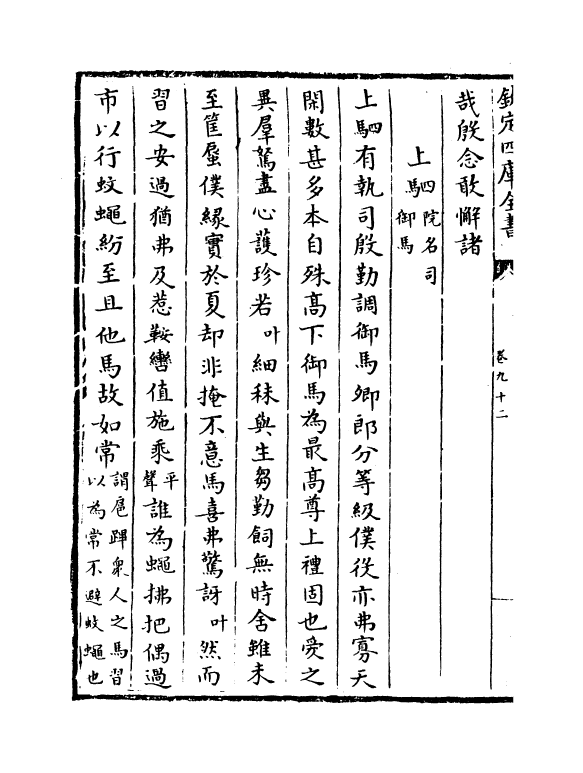 欽定四庫全書
卷九十二
哉殷念敢懈諸
上駟院名司
馬御馬
上駟有執司殷勤調御馬卿郎分等級僕役亦弗寡天
閑數甚多本自殊高下御馬為最高尊上禮固也愛之
異羣駑盡心護珍若叶細秣與生芻勤飼無時舍雖未
至筐蜃僕緣實於夏却非掩不意馬喜弗驚訝叶然而
習之安過猶弗及惹鞍轡值施乘平聲誰為蠅拂把偶過
市以行蚊蠅紛至且他馬故如常謂扈蹕衆人之馬習
以為常不避蚊蠅也